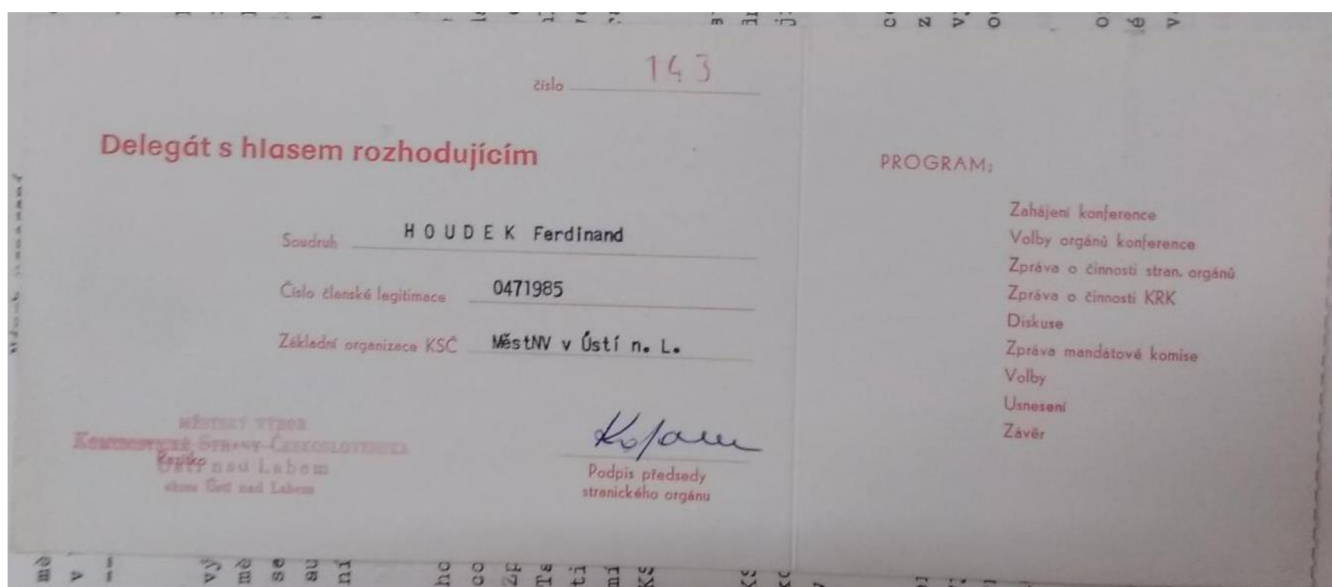 číslo 143
Delegát s hlasem rozhodujícím
Soudruh HOUDEK Ferdinand
Číslo členské legitimace 0471985
Základní organizace KSČ MěstNV v Ústí n. L.
MĚSTSKÝ VÝBOR
KOMUNISTICKÉ STRANY ČESKOSLOVENSKA
Razítko
Ústí nad Labem
okres Ústí nad Labem
Podpis předsedy
stranického orgánu
PROGRAM:
Zahájení konference
Volby orgánů konference
Zpráva o činnosti stran. orgánů
Zpráva o činnosti KRK
Diskuse
Zpráva mandátové komise
Volby
Usnesení
Závěr